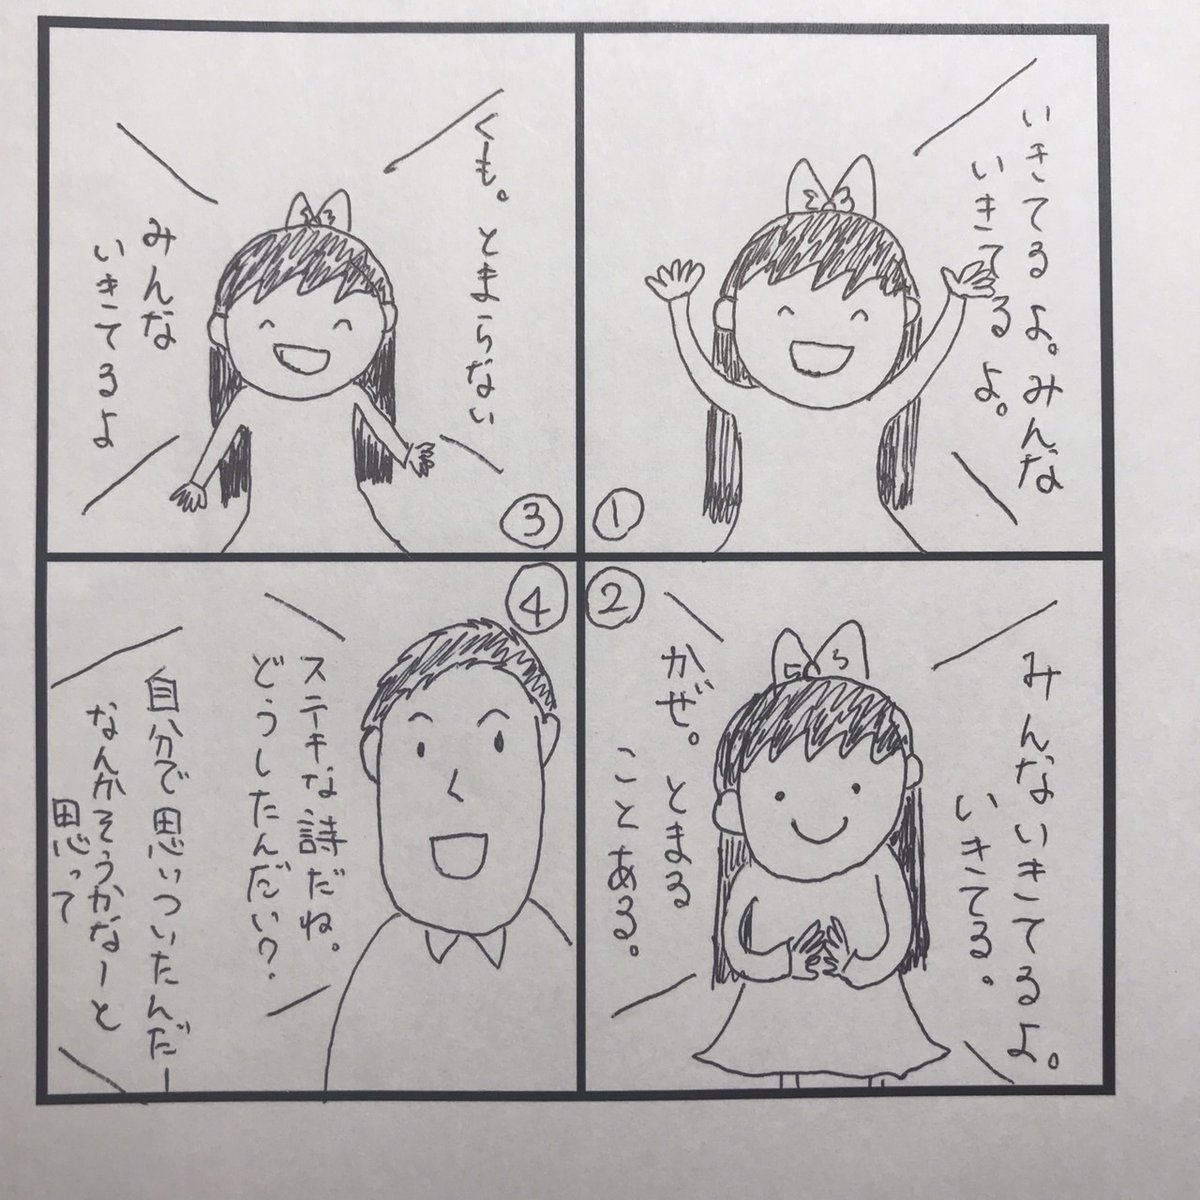 ①
いきてるよ。みんな
いきてるよ。
②
みんないきてるよ。
いきてる。
かぜ。とまる
ことある。
③
くも。とまらない
みんな
いきてるよ
④
ステキな詩だね。
どうしたんだい？
自分で思いついたんだー
なんかそうかなーと
思って